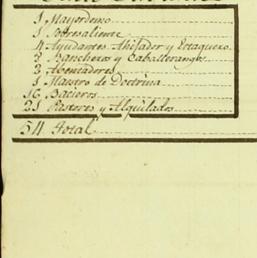 1 Mayordomo
1 Sobresaliente
4 Ayudantes Ahijador y Estaquero
2 Rancheros y Caballerango
2 Aventadores
1 Maestro de Doctrina
16 Bacieros
21 Pastores y Alquilados
54 Total